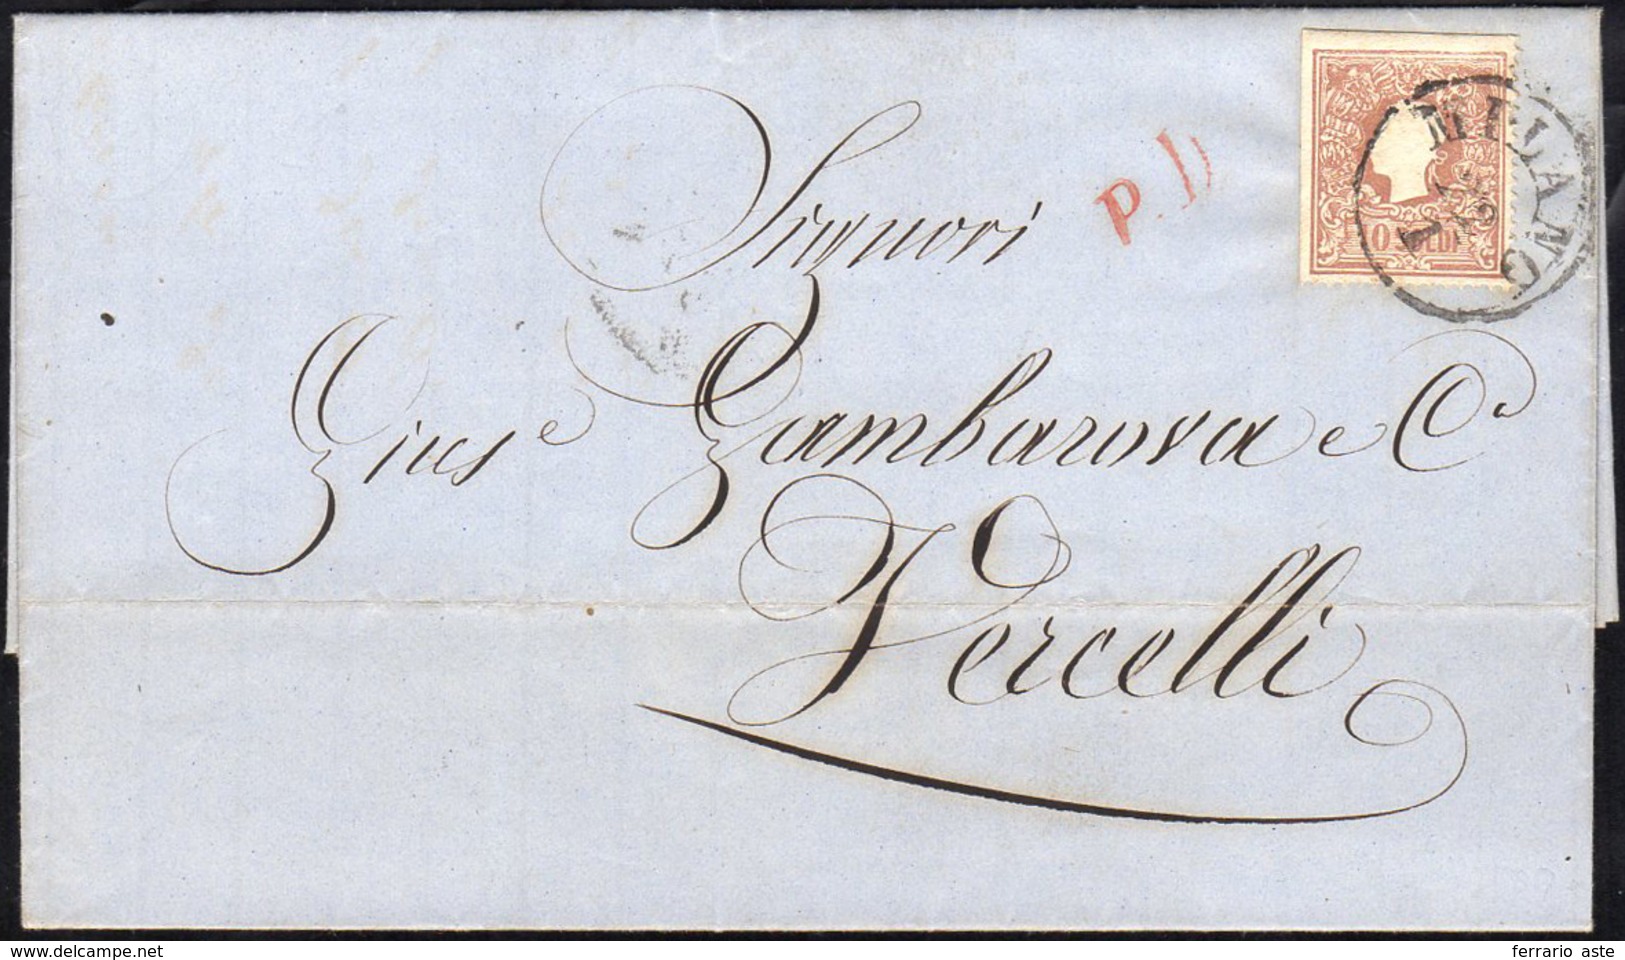 10 SOLDI
MILANO
P.D
Signori
Gius.e Gambarova e C.
Vercelli
www.delcampe.net
ferrario aste